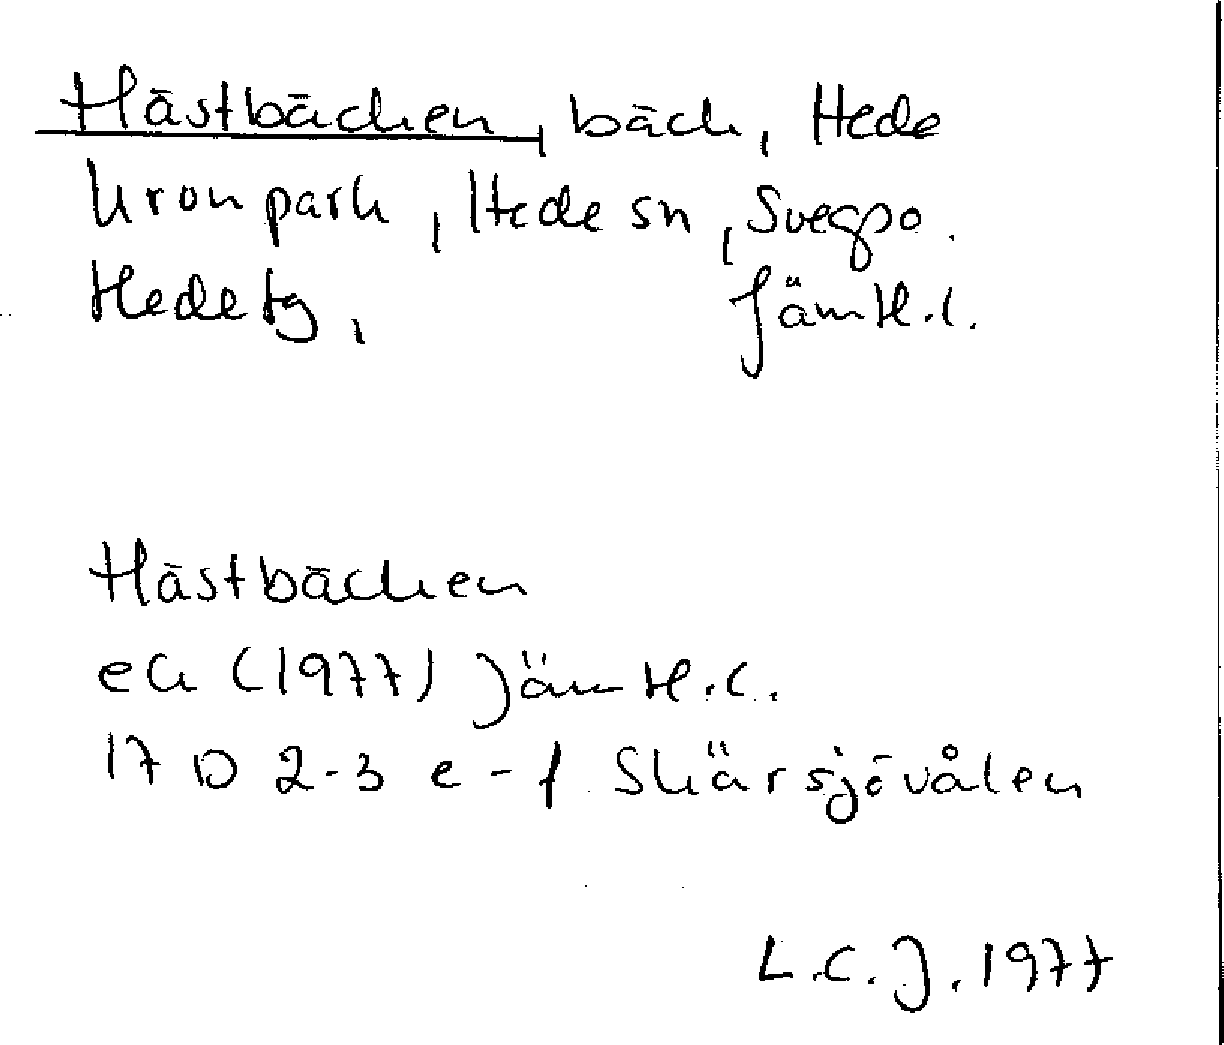 Hästbäcken, bäck, Hede
kronpark, Hede sn, Svegs po.
Hede tg, Jämtl. l.
Hästbäcken
ek (1977) Jämtl. l.
17 D 2-3 e-f Skärsjövålen
L.C.J. 1977